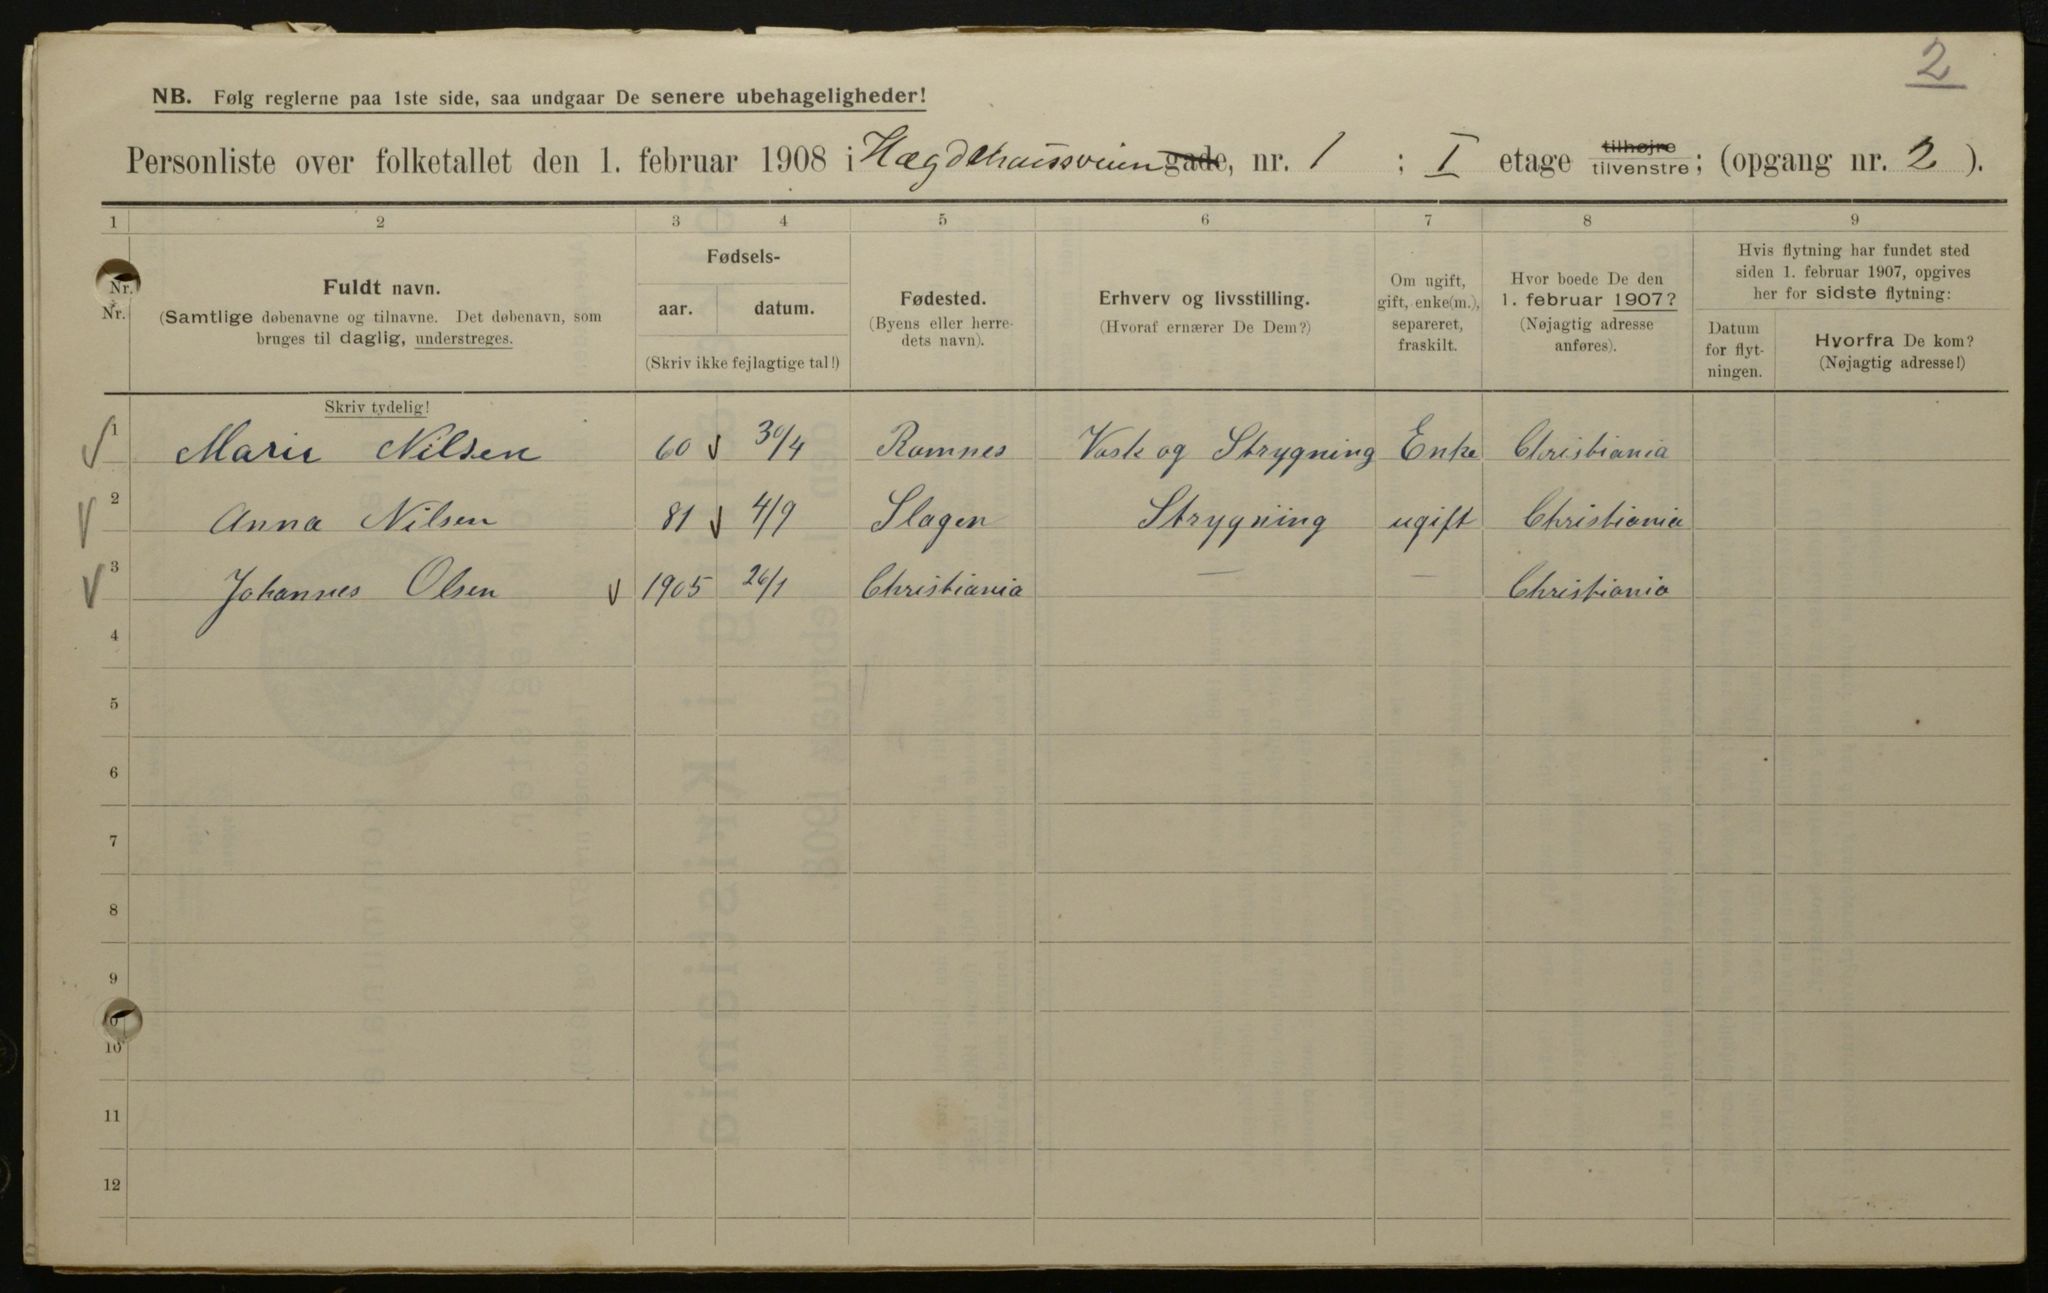 2
NB. Følg reglerne paa 1ste side, saa undgaar De senere ubehageligheder!
Personliste over folketallet den 1. februar 1908 i Hægdehaugsveien gade, nr. 1 ; I etage tilhøjre tilvenstre; (opgang nr. 2 ).
1 2 3 4 5 6 7 8 9
Nr. Nr.
Fuldt navn.
(Samtlige døbenavne og tilnavne. Det døbenavn, som
bruges til daglig, understreges.
Skriv tydelig!
Fødsels-
aar. datum.
(Skriv ikke fejlagtige tal!)
Fødested.
(Byens eller herre-
dets navn).
Erhverv og livsstilling.
(Hvoraf ernærer De Dem?)
Om ugift,
gift, enke(m.),
separeret,
fraskilt.
Hvor boede De den
1. februar 1907?
(Nøjagtig adresse
anføres).
Hvis flytning har fundet sted
siden 1. februar 1907, opgives
her for sidste flytning:
Datum
for flyt-
ningen.
Hvorfra De kom?
(Nøjagtig adresse!)
1 Marie Nilsen 60 30/4 Ramnes Vask og Strygning Enke Christiania
2 Anna Nilsen 81 4/9 Slagen Strygning ugift Christiania
3 Johannes Olsen 1905 26/1 Christiania — — Christiania
4
5
6
7
8
9
10
11
12